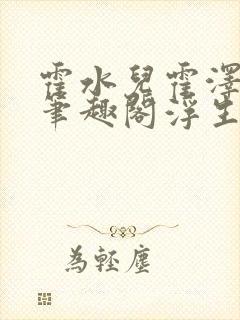 霍水兒霍澤
筆趣閣浮生
為輕塵